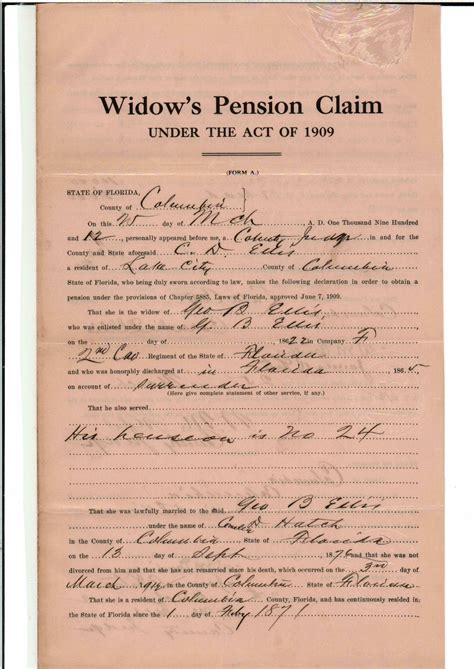 Widow's Pension Claim
UNDER THE ACT OF 1909
(FORM A.)
STATE OF FLORIDA,
County of Columbia
On this day of Mch A. D. One Thousand Nine Hundred
and 12, personally appeared before me, a County Judge in and for the
County and State aforesaid C. D. Ellis
a resident of Lake City County of Columbia
State of Florida, who being duly sworn according to law, makes the following declaration in order to obtain a
pension under the provisions of Chapter 5885, Laws of Florida, approved June 7, 1909.
That she is the widow of Geo B Ellis
who was enlisted under the name of G B Ellis
on the day of 1862 in Company F
2nd Cav Regiment of the State of Florida
and who was honorably discharged at in Florida 1865
on account of surrender
(Here give complete statement of other service, if any.)
That he also served
His pension is No 24
That she was lawfully married to the said Geo B Ellis
under the name of D Hatch
in the County of Columbia State of Florida
on the 13 day of Sept 1876 and that she was not
divorced from him and that she has not remarried since his death, which occurred on the 3rd
March 1912, in the County of Columbia State of Florida
That she is a resident of Columbia County, Florida, and has continuously resided in
the State of Florida since the 1 day of Feby 1871